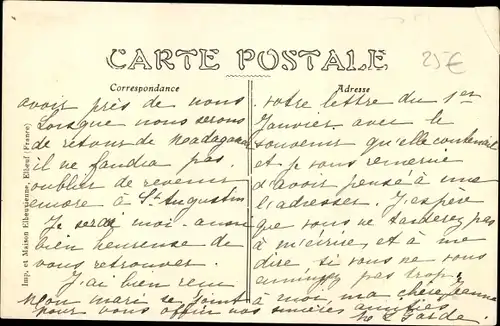 CARTE POSTALE
25€
Correspondance
Adresse
Imp. d. Maison Elbeusienne, Elbeuf (France)
avoir près de nous
Lorsque nous serons
de retour de Madagascar
il ne faudra pas
oublier de revenir
encore à St Augustin
Je serai moi aussi
bien heureuse de
vous retrouver.
J'ai bien reçu
votre lettre du 1er
Janvier avec le
souvenir qu'elle contenait
et je vous remercie
d'avoir pensé à me
l'adresser. J'espère
que vous ne tarderez pas
à m'écrire, et à me
dire si vous ne vous
ennuyez pas trop.
Mon mari se joint à moi, ma chère Jeanne
pour vous offrir nos sincères amitiés
Garde